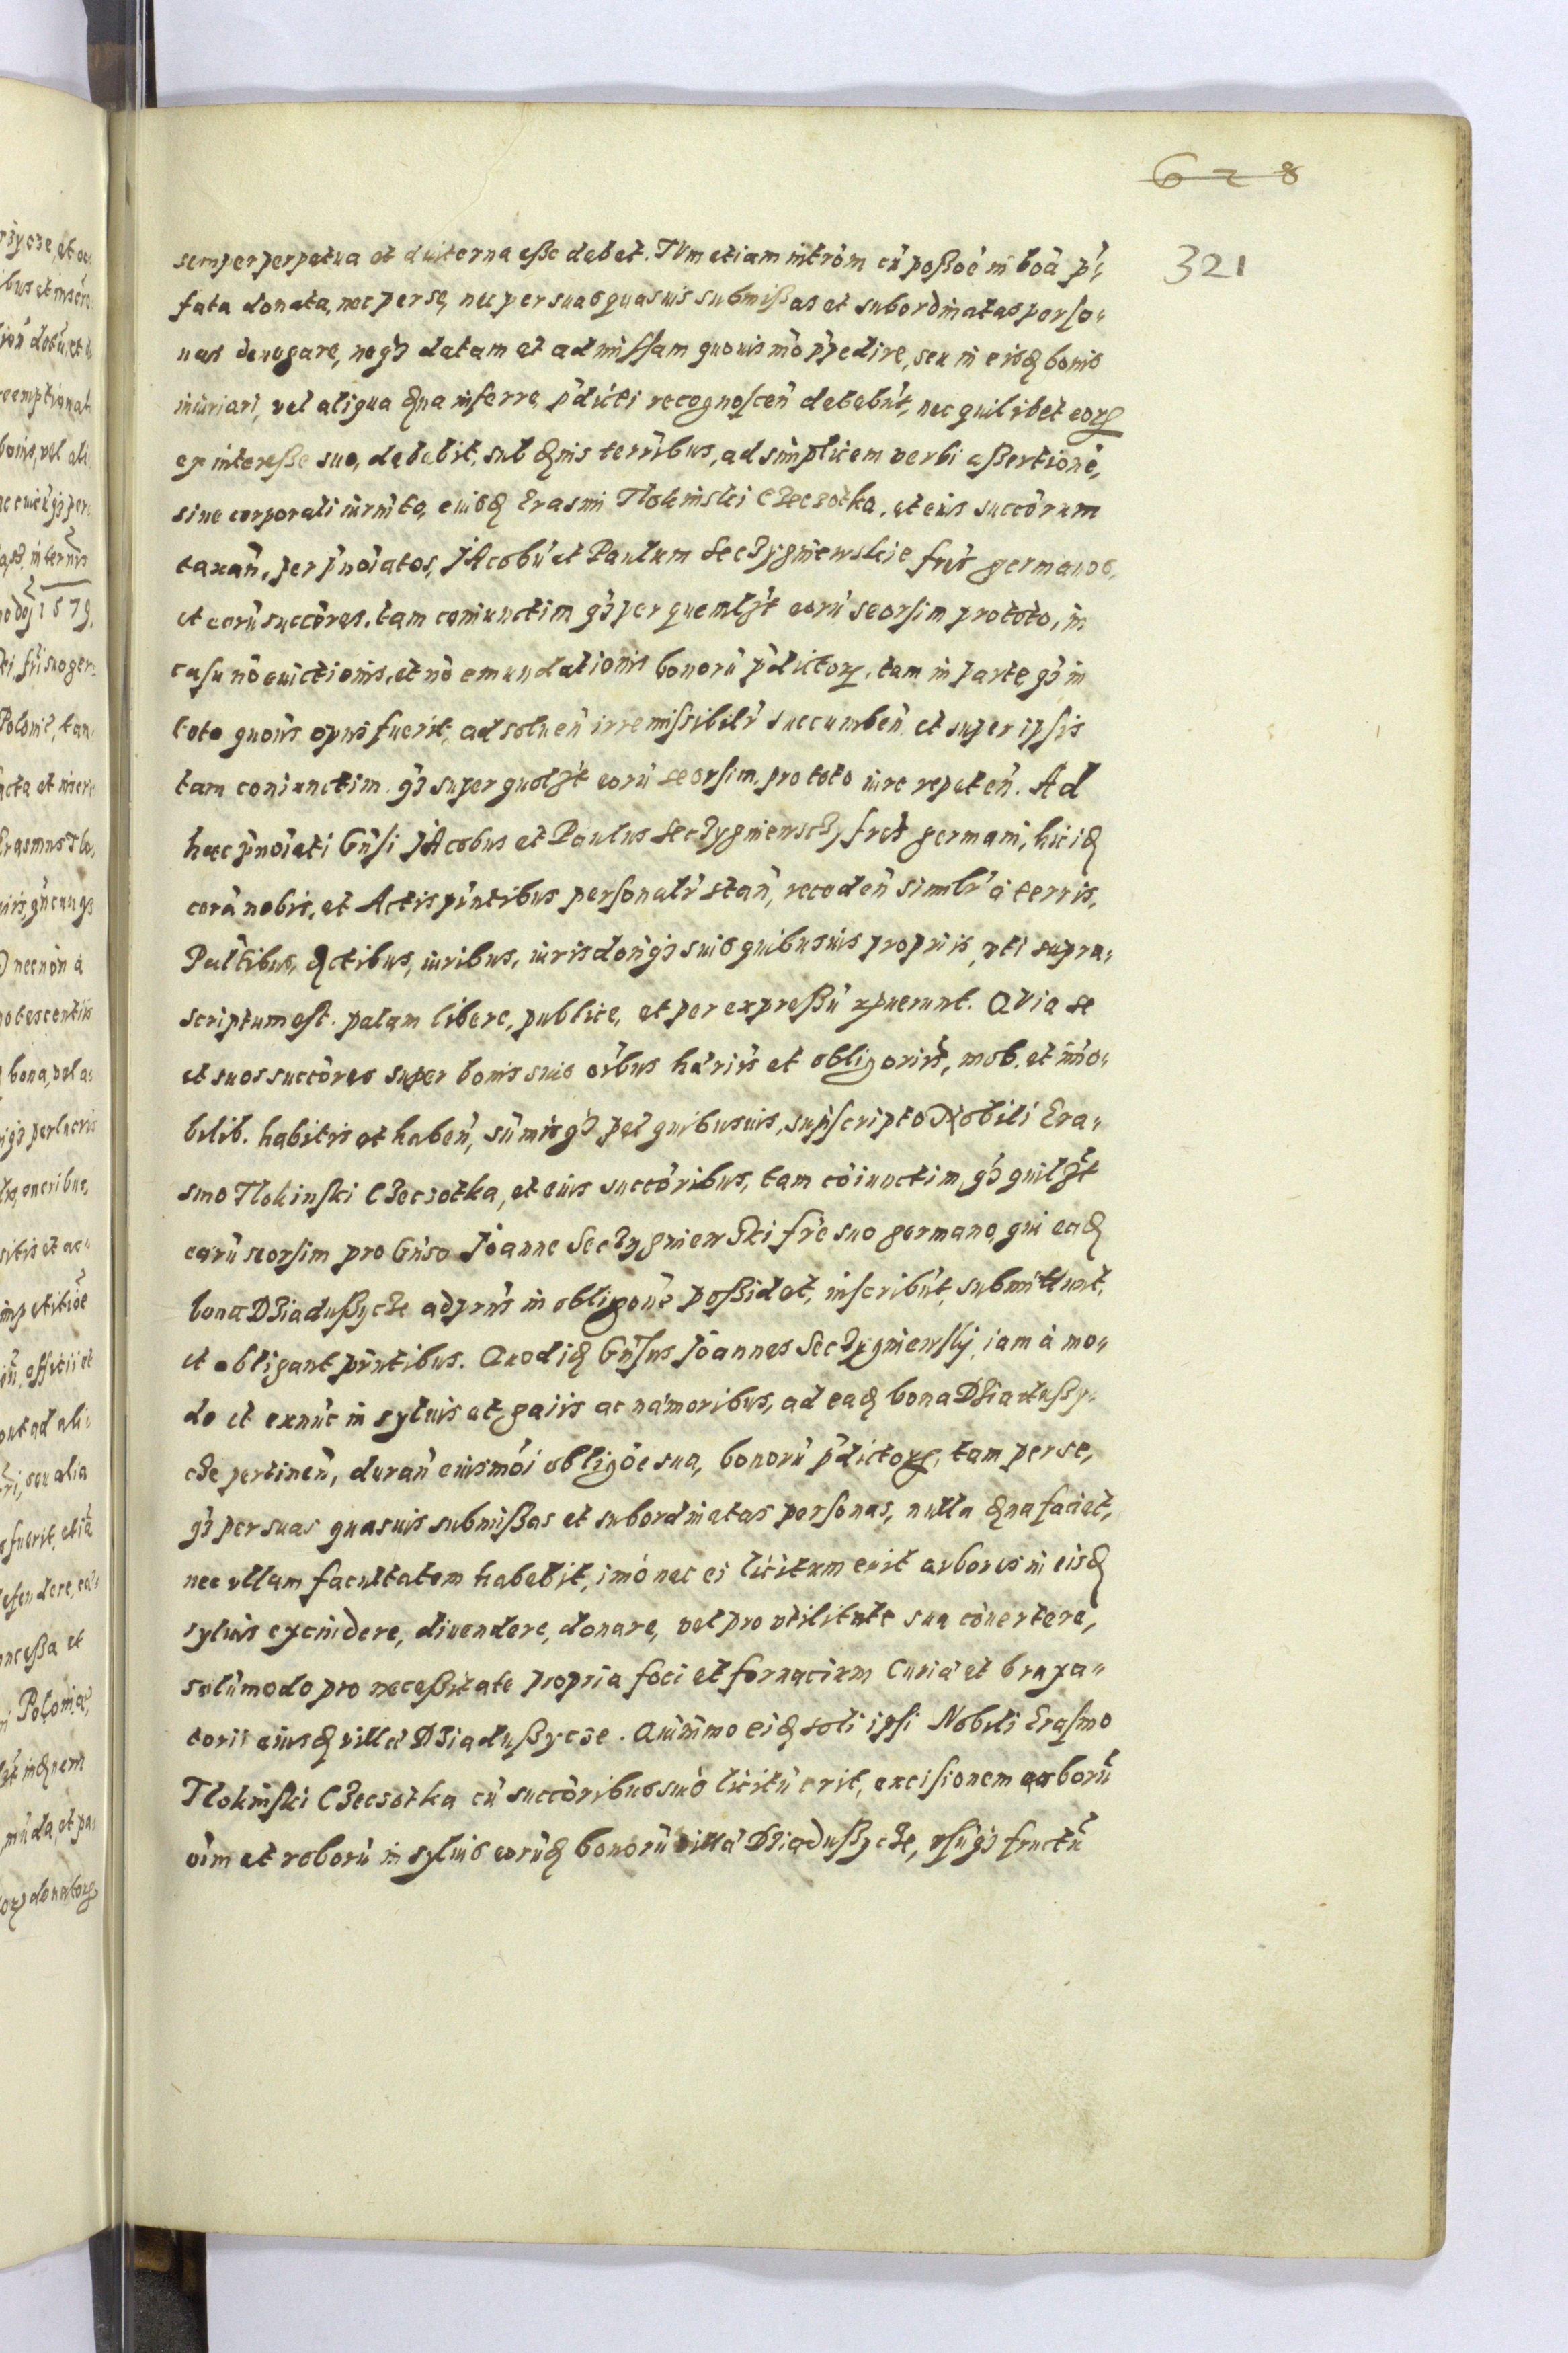 628
321
semper perpetua et duiterna esse debet. TVm etiam intrōm cū possōe in bōā p̄:
fata donata, nec per se, nec per suas quasuis submissas et subordinatas perso:
nas denegare, neqз datam et admissam quouis mō p̄pedire, seu in eisdē bonis
iniuriari, vel aliqua dāna inferre, p̄dicti recognoscen̄ debebūt, nec quilibet eorꝝ
ex interesse suo, debebit, sub dānis terr̄ibus, ad simplicem verbi assertionē,
sine corporali iurm̄to, eiusdē Erasmi Tlokinski Czeczotka, et eius succōrum
taxan̄, per p̄nōiatos, JAcobū et Paulum Seczygniewskie fr̄es germanos,
et eorū succōres, tam coniunctim qз per quemlзt eorū seorsim pro toto, in
casu nō euictionis, et nō emundationis bonorū p̄dictorꝝ, tam in parte qз in
toto quoūs opus fuerit, ad soluen̄ irremissibilr̄ succumben̄ et super ipsis
tam coniunctim, qз super quolзt eorū seorsim pro toto iure repeten̄. Ad
haec p̄nōiati Gn̄si JAcobus et Paulus Seczygniewscy fr̄es germani, hic idē
corā nobis, et Actis pn̄tibus personalr̄ stan̄, receden̄ similr̄ à terris,
Pal̄tibus, dctibus, iuribus, iurisdōn̄qз suis quibusuis proprijs, vti supra:
scriptum est. palam libere, publice, et per expressū xpuerunt. QVia se
et suos succōres super bonis suis ōībus hārijs et obligorijs, mob. et īmo:
bilib. habitis et haben̄, sūmisqз pēl quibusuis, sup̄scripto Nobili Era:
smo Tlokinski Czeczotka, et eius succōribus, tam cōiunctim, qз quilзt
eorū seorsim pro Gn̄so Joanne Seczygniewski frē suo germano, qui eadē
bona Dziadussycze adpr̄ns in obligōne possidet, inscribūt, submittunt,
et obligant pn̄tibus. Quod idē Gn̄sus Joannes Seczygniewsky, iam à mo:
do et exnūc in syluis et gaijs ac nemoribus, ad eadē bona Dziadussy:
cze pertinen̄, duran̄ eiusmōi obligōe sua, bonorū p̄dictorꝝ, tam per se,
qз per suas quasuis submissas et subordinatas personas, nulla dāna faciet,
nec vllam facultatem habebit, imò nec ei licitum erit arbores in eisdē
syluis excindere, diuendere, donare, vel pro vtilitate sua cōuertere,
solūmodo pro necessitate propria foci et fornacium Curiæ et braxa:
torii eiusdē villæ Dziadussycze. Quinimmo eidē soli ipsi Nobili Erasmo
Tlokinski Czeczotka cū succōribus suis licitū erit, excisionem arborū
oīm et roborū in syluis eorūdē bonorū villæ Dziadussycze, vsūqз fructū